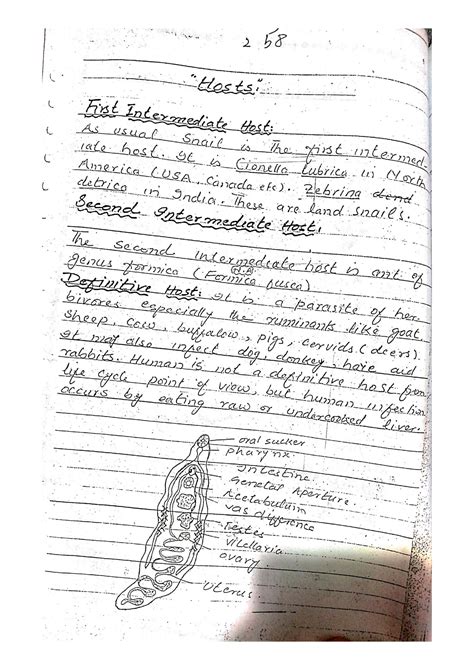 2 58
"Hosts":
First Intermediate Host:
As usual Snail is The first intermed
iate host. It is Cionella Lubrica in North
America (USA, Canada etc). Zebrina dend
detrica in India. These are land snails.
Second Intermediate Host:
The second intermediate host is ant of
genus formica (Formica fusca)
(N.A)
Definitive Host: It is a parasite of her
bivores especially the ruminants like goat
sheep, cow, buffalow, pigs, cervids (deers).
It may also infect dog, donkey, hare and
rabbits. Human is not a definitive host from
life cycle point of view, but human infection
occurs by eating raw or undercooked liver.
oral sucker
pharynx.
Intestine.
Genetal Aperture.
Acetabulum
vas difference
Testes
vitellaria
ovary.
Uterus.